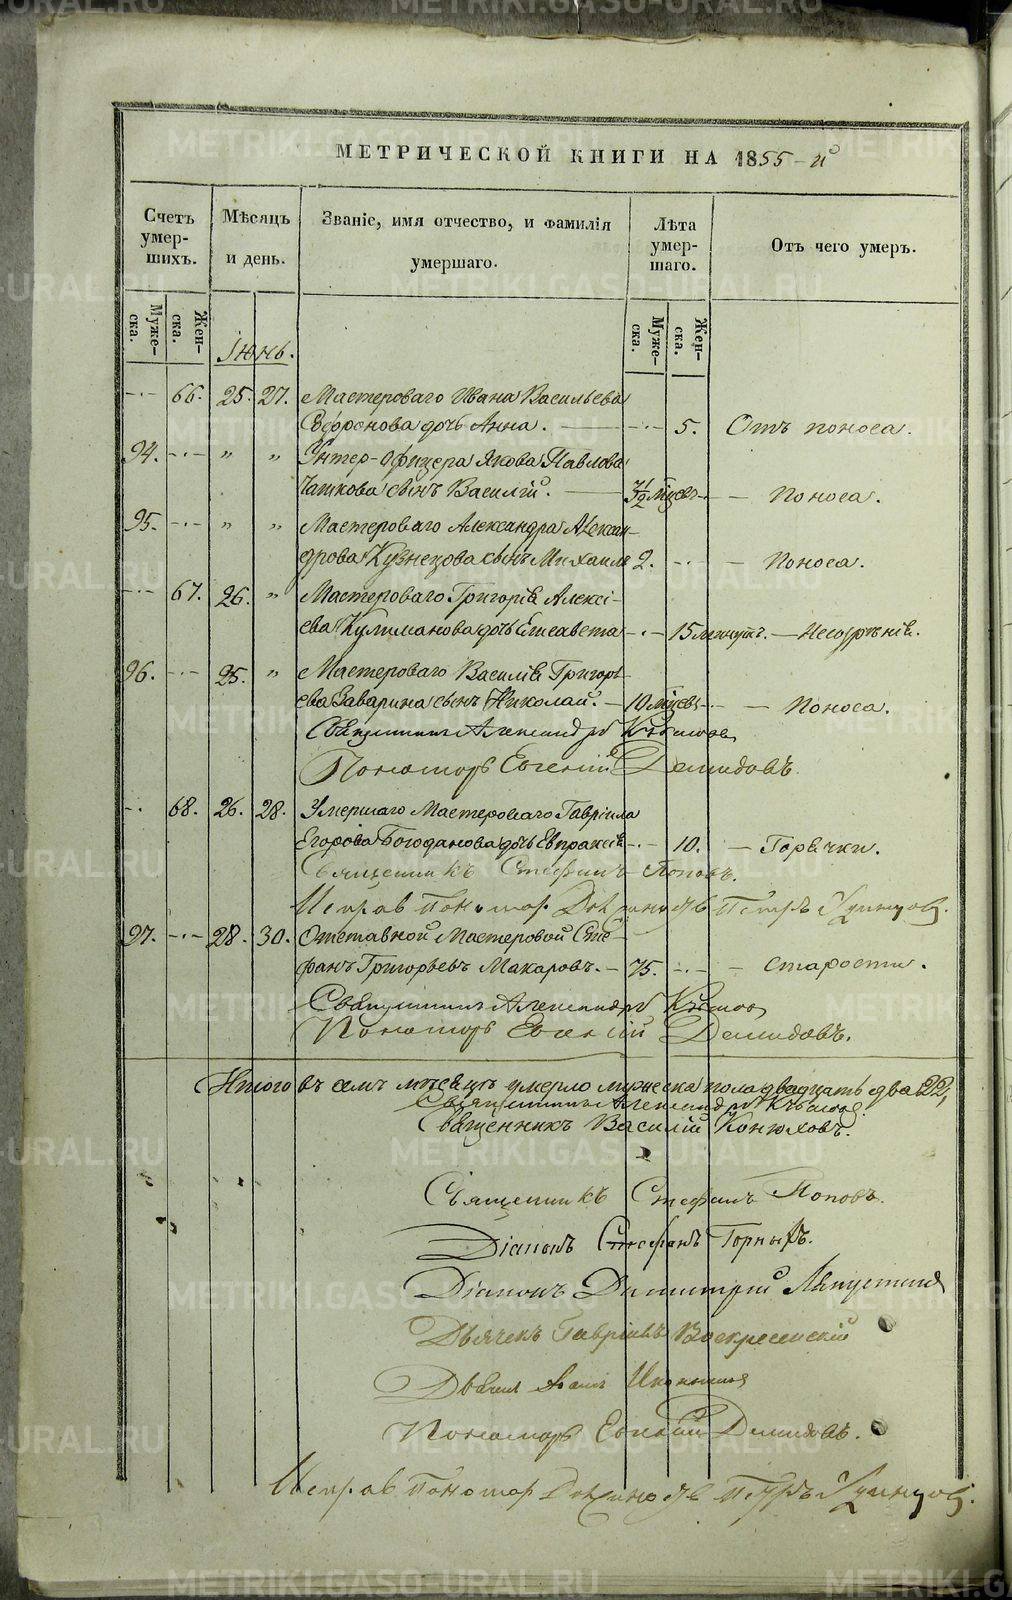 МЕТРИЧЕСКОЙ КНИГИ НА 1855-й
Счетъ умер-шихъ.
Мѣсяцъ и день.
Званіе, имя отчество, и фамилія умершаго.
Лѣта умер-шаго.
Отъ чего умеръ.
Муже-ска. Жен-ска. Муже-ска. Жен-ска.
Іюнь.
-·- 66. 25. 27. Мастероваго Ивана Васильева
Софронова дочь Анна. -·- 5. Отъ поноса.
94. -·- " " Унтер-Офицера Якова Павлова
сынъ Василій. - Поноса.
95. -·- " " Мастероваго Александра Алексан-
дрова Кузнецова сынъ Михаилъ 2. -·- - Поноса.
-·- 67. 26. " Мастероваго Григорія Алексѣ-
ева Кулиманова дочь Елисавета -·- 15 минутъ. -
96. -·- 25. " Мастероваго Василія Григорь-
ева Заварина сынъ Николай. - 10 мѣсяц. -·- - Поноса.
Священникъ Александръ
Пономарь Евгеній Демидовъ.
-·- 68. 26. 28. Умершаго Мастероваго Гавріила
Егорова Богоданова дочь Евпраксія -·- 10. - Горячки.
Священникъ Стефанъ Поповъ.
Исправ Пономар. Петръ
97. -·- 28. 30. Отставной Мастеровой Сте-
фанъ Григорьевъ Макаровъ. - 75. -·- - старости.
Священникъ Александръ
Пономарь Евгеній Демидовъ.
Итого въ семъ мѣсяцѣ умерло мужеска пола двадцать два 22,
Священникъ Александръ
Священникъ Василій Конюховъ.
Священникъ Стефанъ Поповъ.
Діаконъ Стефанъ Горныхъ.
Діаконъ Димитрій Ляпустинъ
Дьячекъ Гавріилъ Воскресенскій
Пономарь Евгеній Демидовъ.
Исправ Пономар Петръ
METRIKI.GASO-URAL.RU